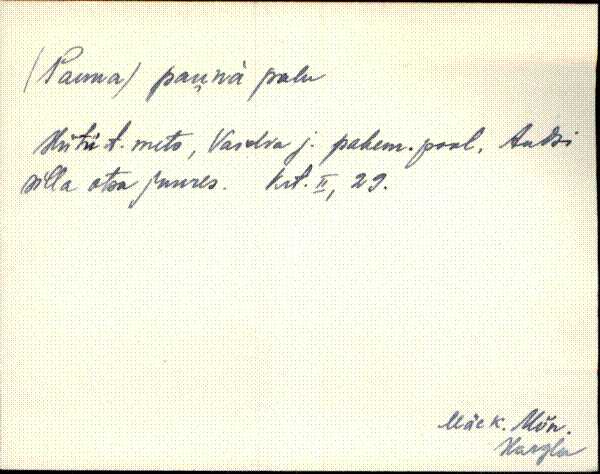 (Pauna) pau̯nà palu
Hütü t. mets, Vaidva j. pahem. pool, Andsi
silla otsa juures. Krt. II, 29.
Mäe k. Mõn.
Hargla